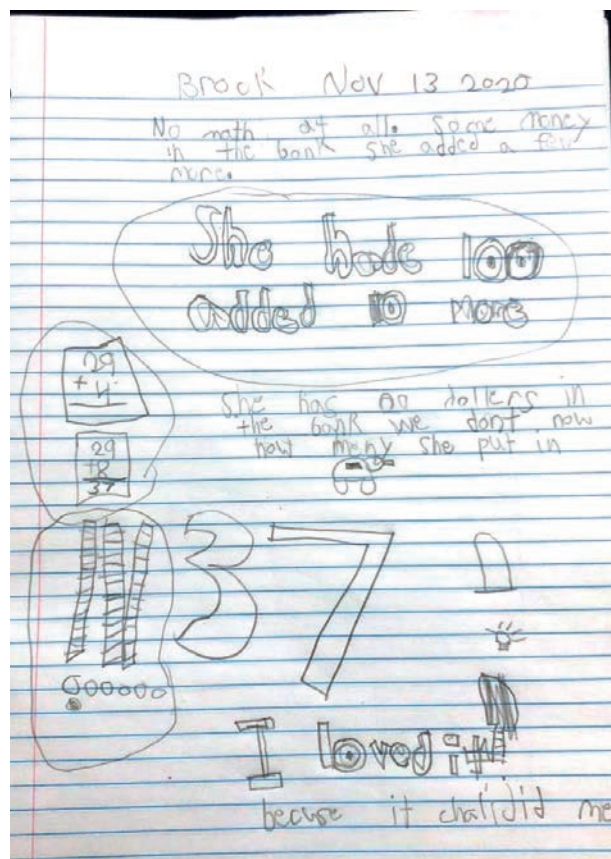 Brock Nov 13 2020
No math at all. Some money
in the bank she added a few
more.
She hade 100
added 10 more
29
+ 4
She has 00 dollers in
the bank we dont now
how meny she put in
29
+8
37
37
I loved it
becuse it chalidid me